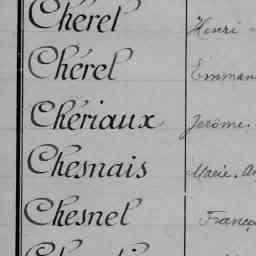 Cherel Henri
Chérel Emman
Chériaux Jerôme.
Chesnais Marie. An
Chesnel França